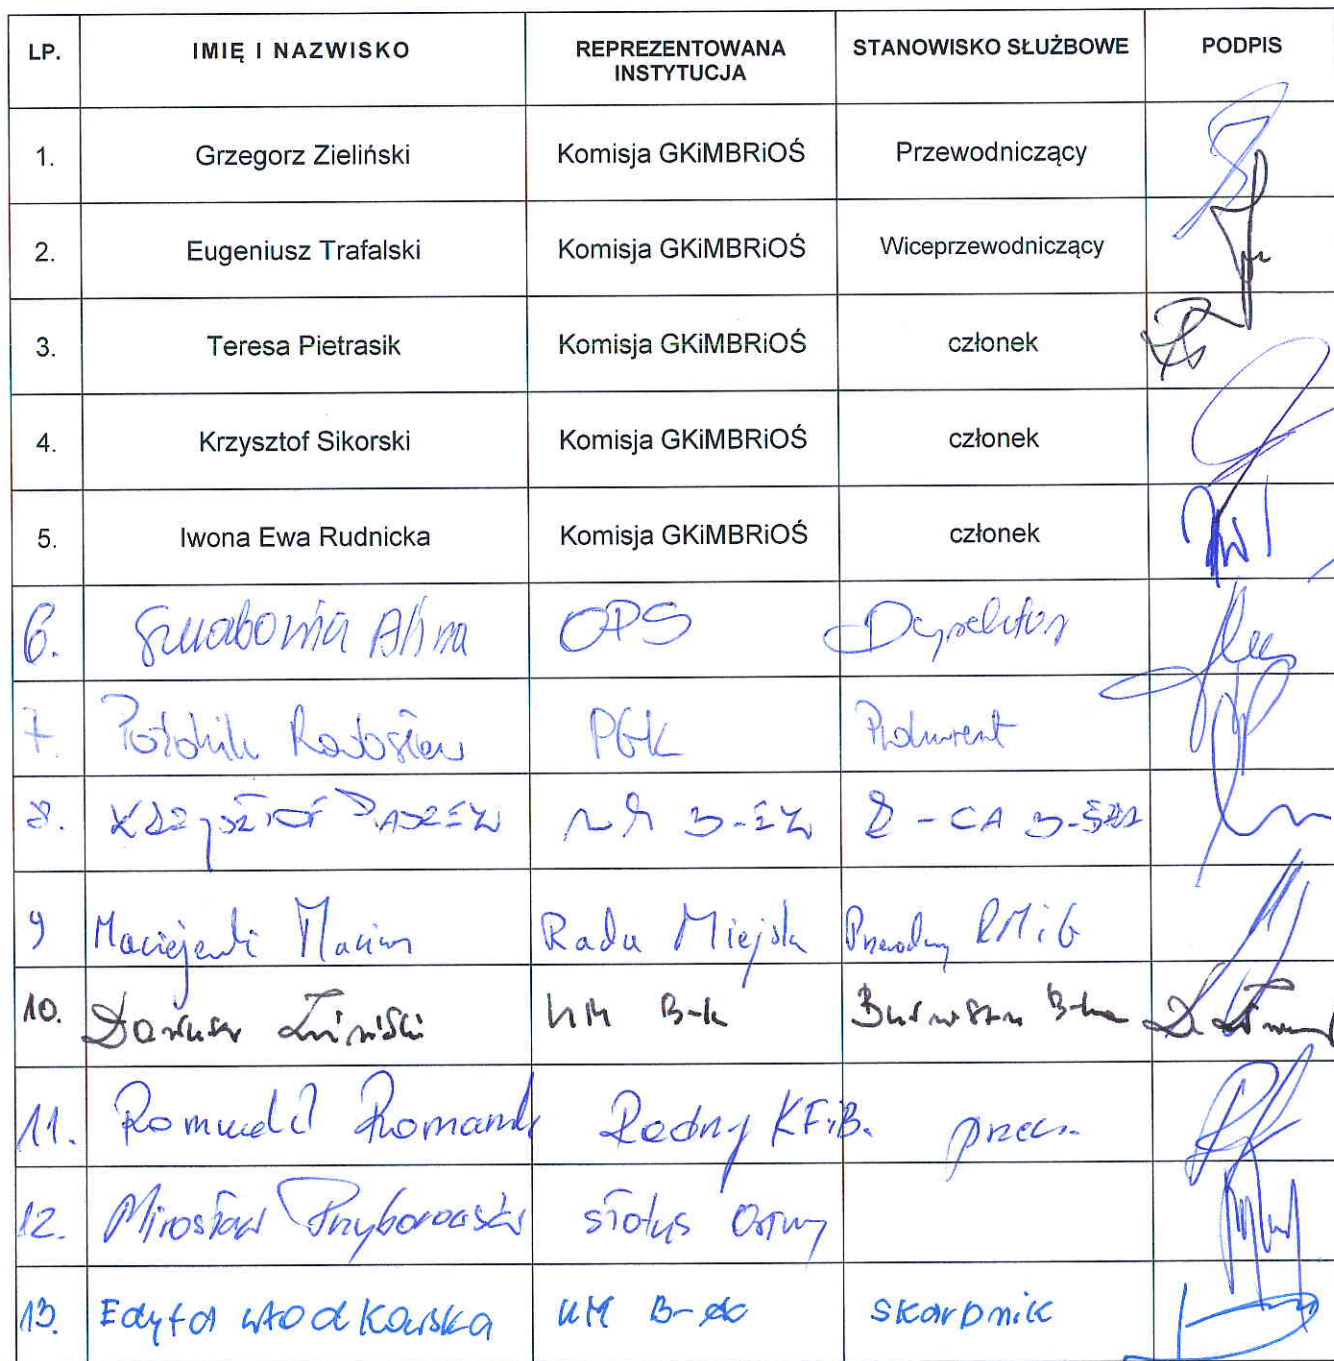 LP. IMIĘ I NAZWISKO REPREZENTOWANA INSTYTUCJA STANOWISKO SŁUŻBOWE PODPIS
1. Grzegorz Zieliński Komisja GKiMBRiOŚ Przewodniczący
2. Eugeniusz Trafalski Komisja GKiMBRiOŚ Wiceprzewodniczący
3. Teresa Pietrasik Komisja GKiMBRiOŚ członek
4. Krzysztof Sikorski Komisja GKiMBRiOŚ członek
5. Iwona Ewa Rudnicka Komisja GKiMBRiOŚ członek
6. Alina OPS Dyrektor
7. Radosław PGK Prokurent
8. Krzysztof
9 Maciejewski Marcin Rada Miejska RMiG
10. Dariusz UM B-k Burmistrz
11. Romuald Radny KFiB.
12. Mirosław Przyborowski
13. Edyta Włodkowska UM Skarbnik